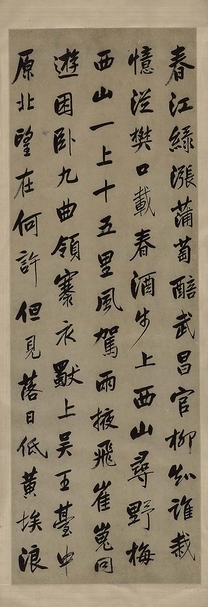 春江綠漲蒲萄醅武昌官柳知誰栽
憶從樊口載春酒步上西山尋野梅
西山一上十五里風駕兩掖飛崔嵬同
遊困臥九曲領褰衣獨上吳王臺中
原北望在何許但見落日低黃埃浪